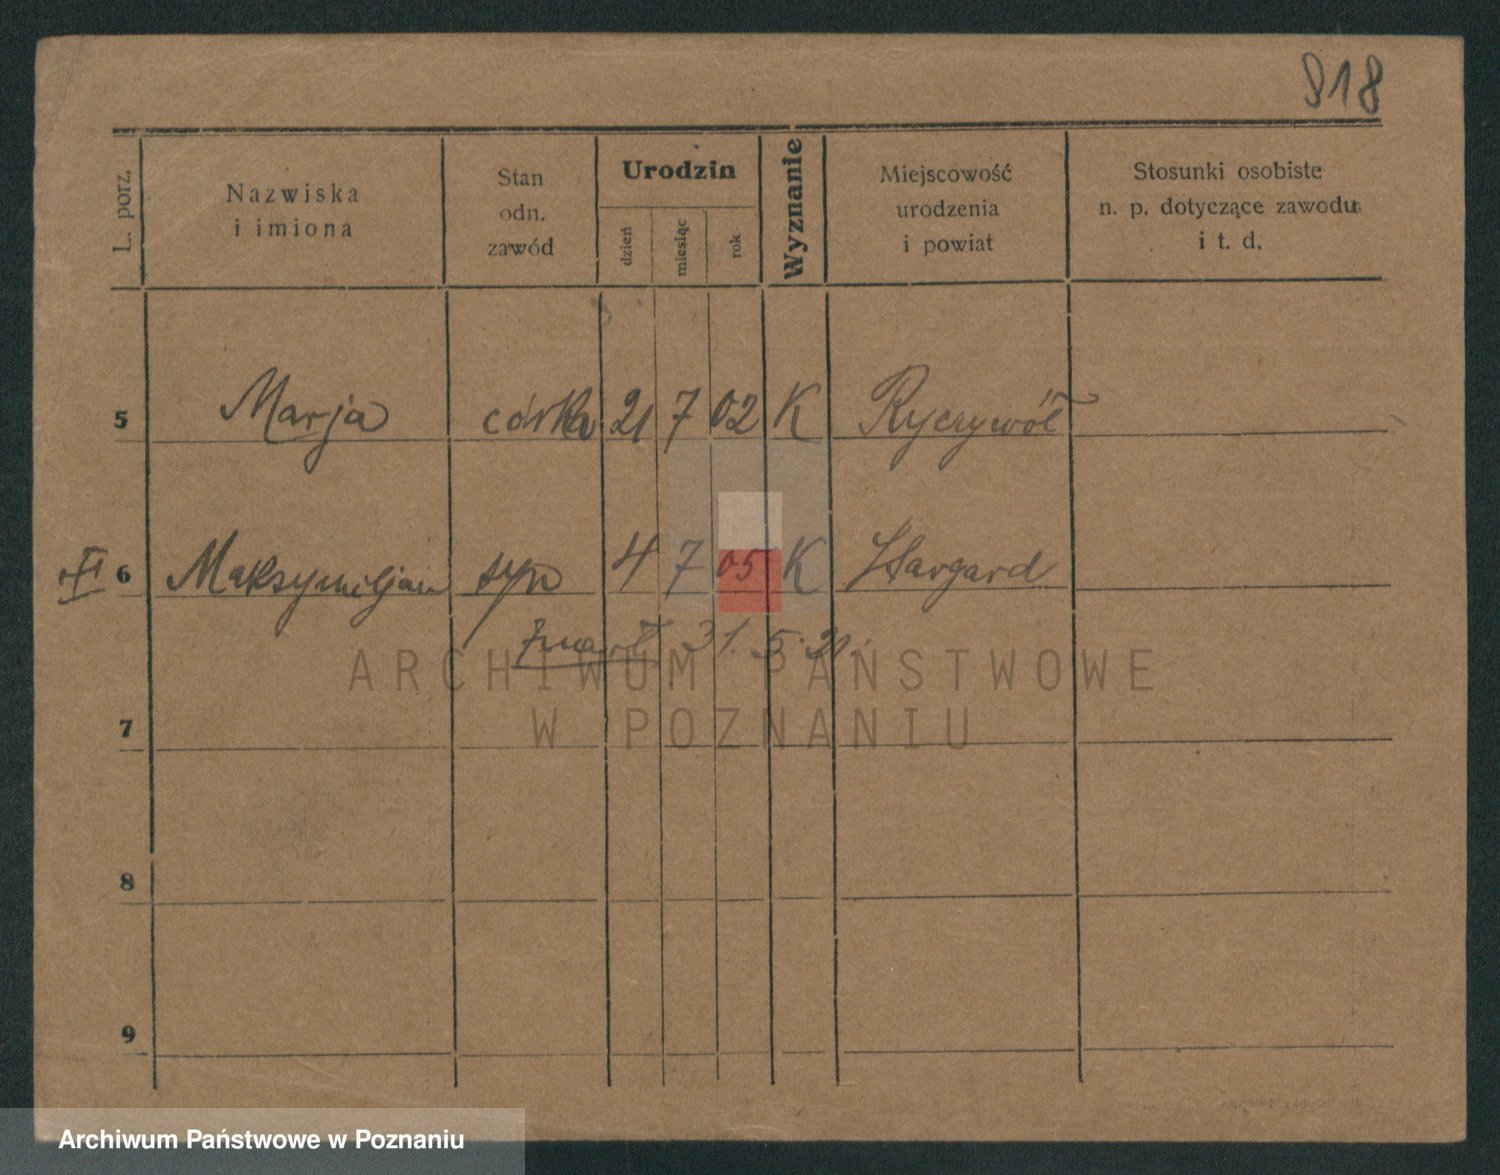 818
L. porz.
Nazwiska
i imiona
Stan
odn.
zawód
Urodzin
dzień
miesiąc
rok
Wyznanie
Miejscowość
urodzenia
i powiat
Stosunki osobiste
n. p. dotyczące zawodu
i t. d.
5 Marja córka 21 7 02 K Ryczywół
6 Maksymiljan syn 4 7 05 K Stargard
zmarł 31. 5. 21.
ARCHIWUM PAŃSTWOWE
W POZNANIU
7
8
9
Archiwum Państwowe w Poznaniu